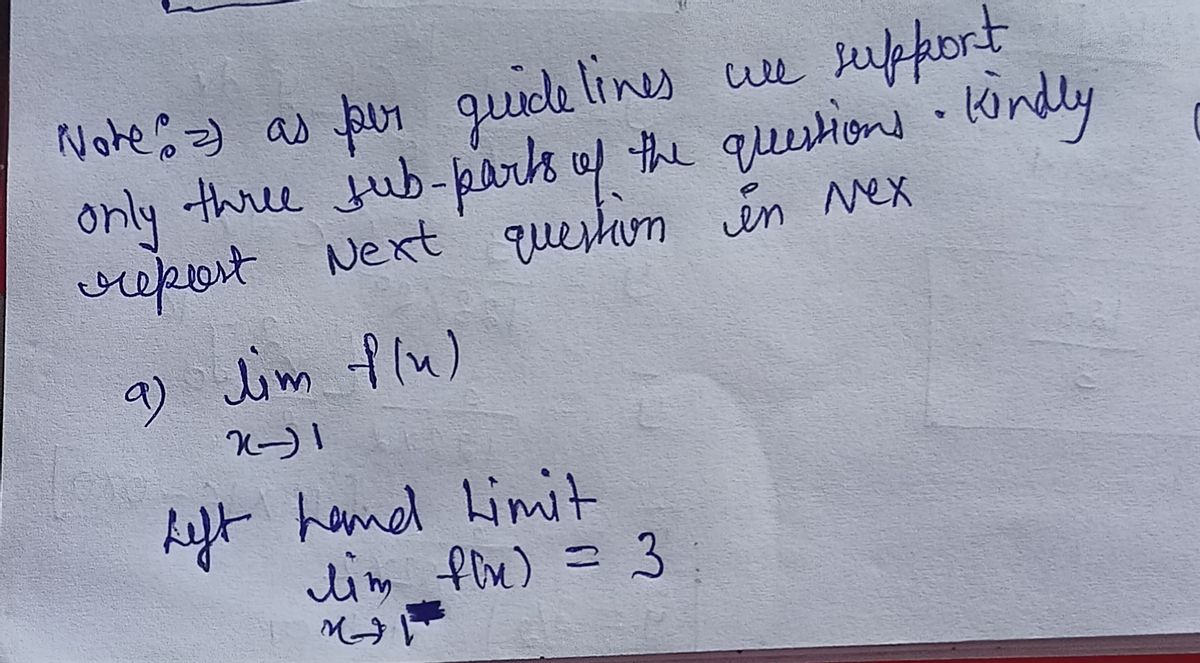 Note:⇒ as per guidelines we support
only three sub-parts of the questions. Kindly
repost Next question in Nex
a) lim f(x)
x→1
Left hand Limit
lim f(x) = 3
x→1⁻